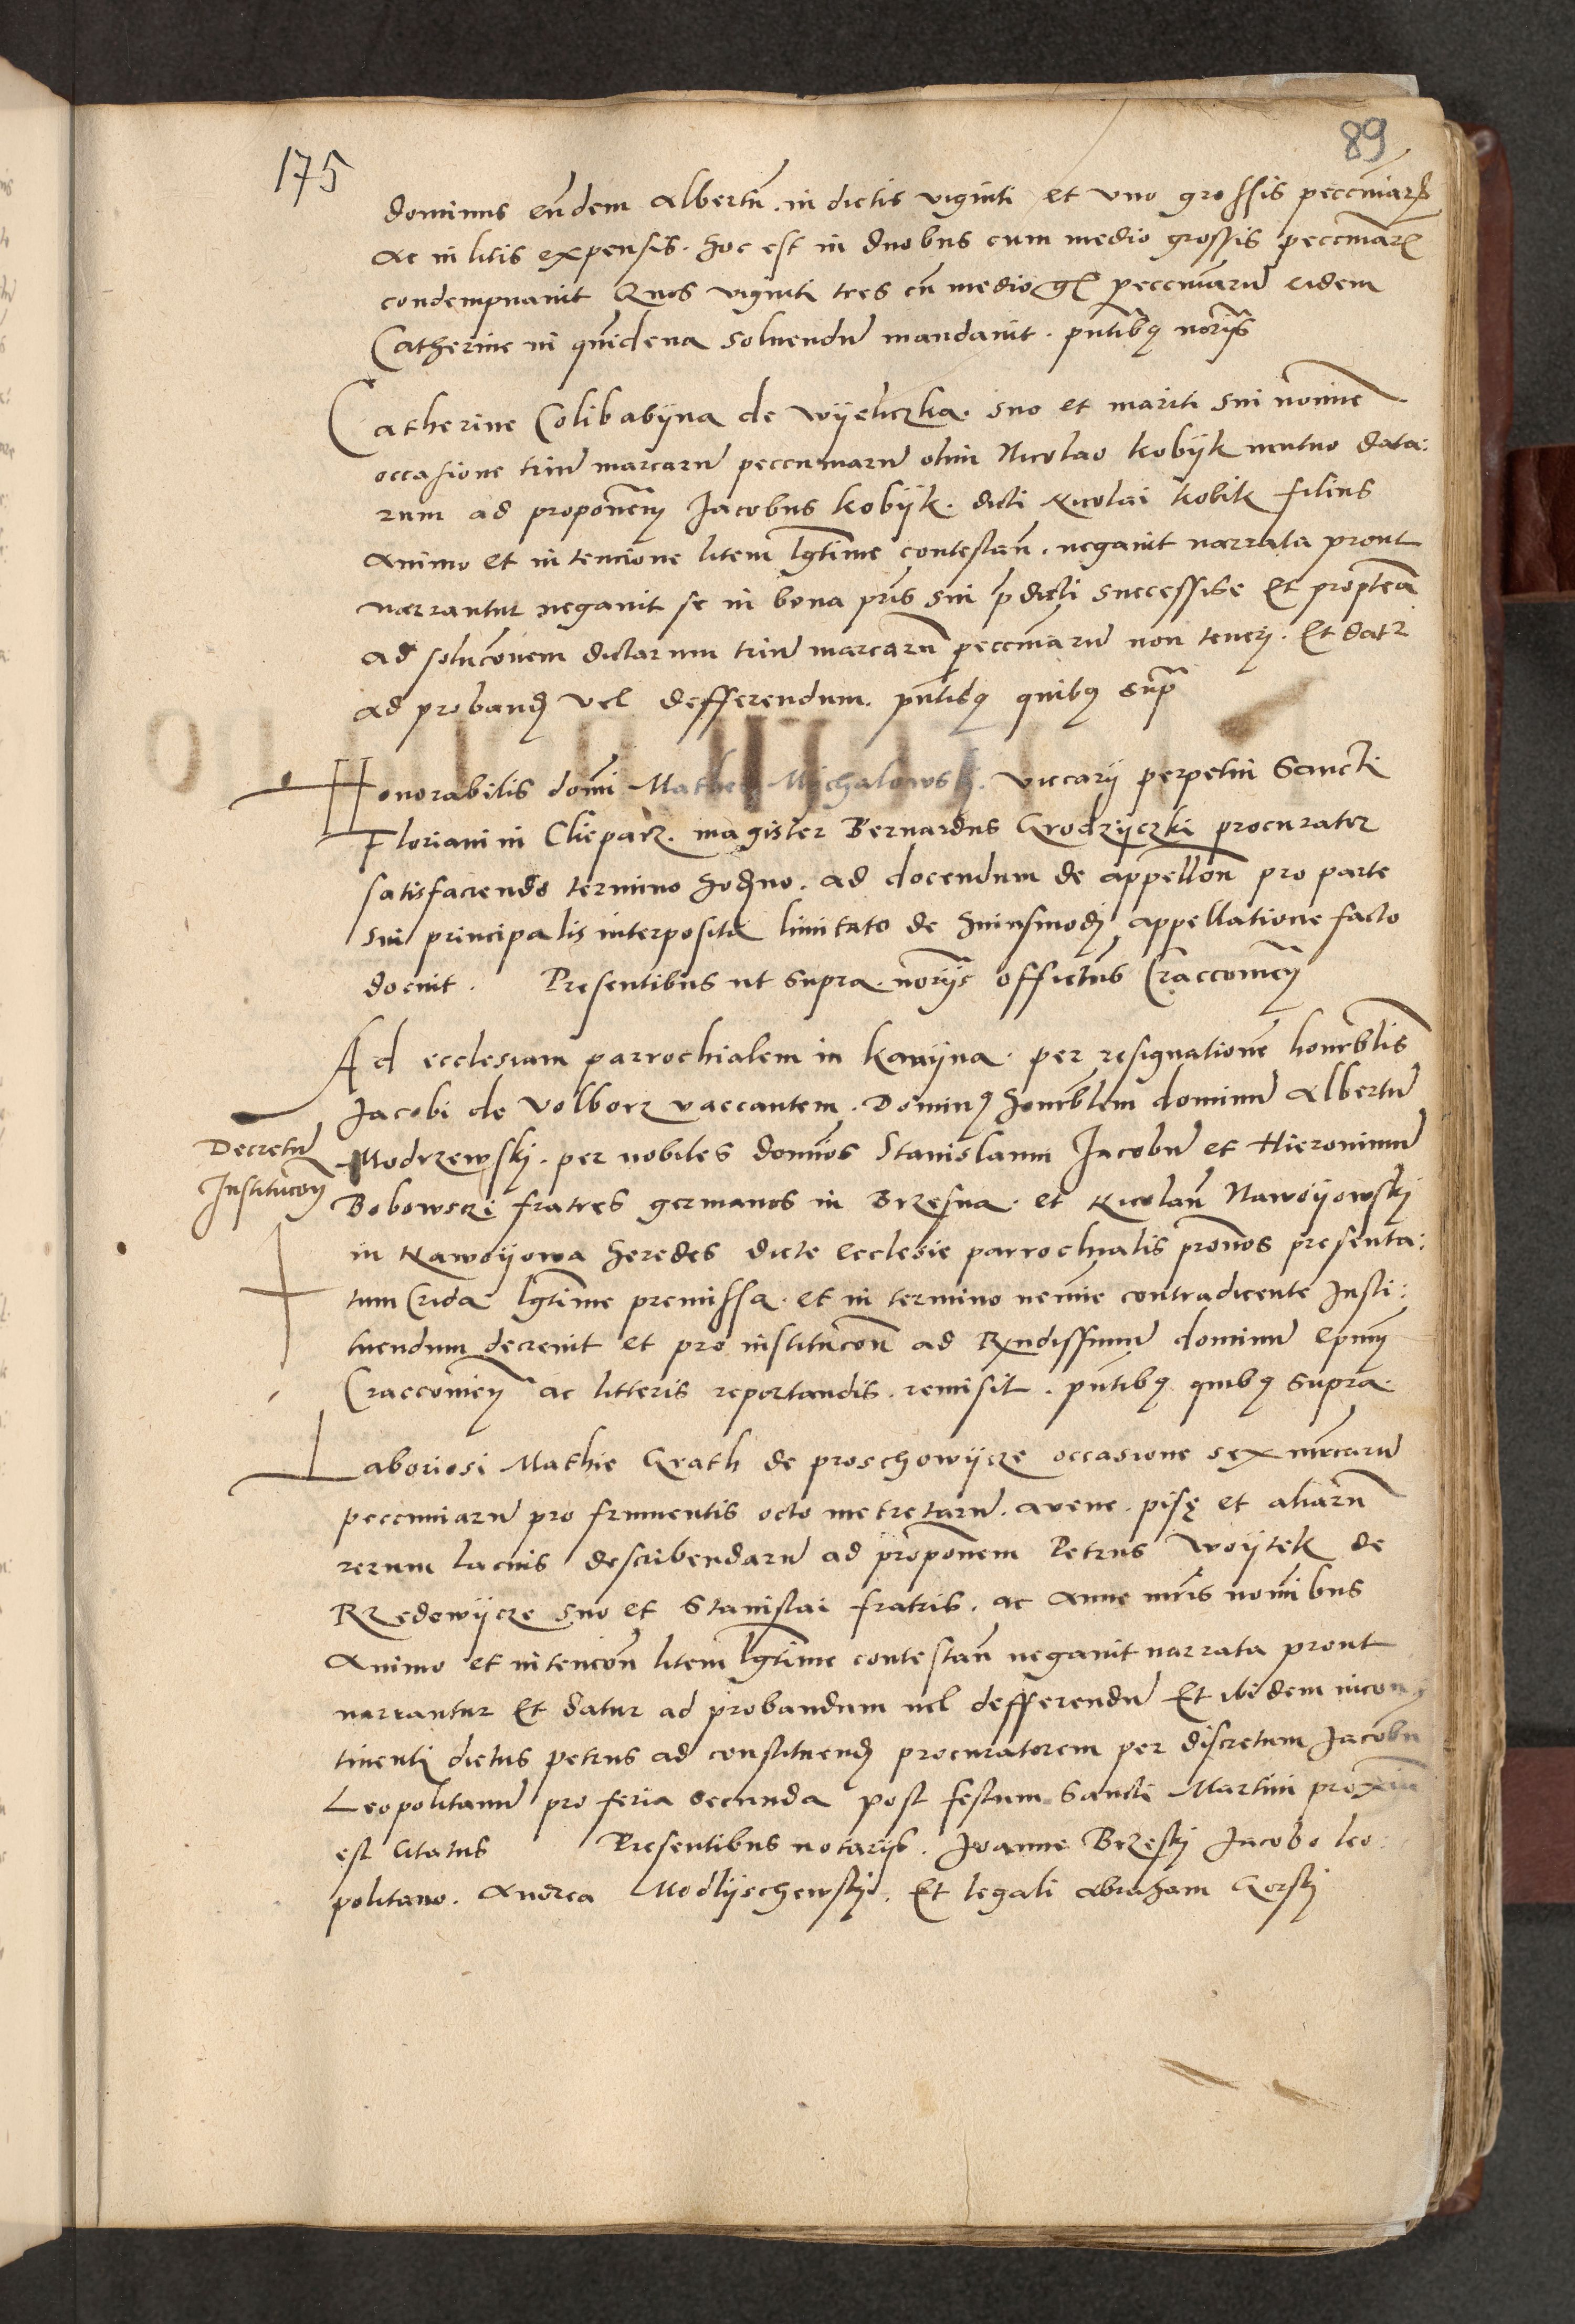 175
89
dominus eundem Albertum in dictis viginti et vno grossis peccuniarum
ac in litis expensis. hoc est in duobus cum medio grossis peccuniarum
condempnavit Quos viginti tres cum medio gr peccuniarum eidem
Catherine in quindena solvendum mandavit. pntibus norijs
Catherine Colibabÿna de wÿeliczka. suo et mariti sui nomine
occasione trium marcarum peccuniarum olim Nicolao kobÿk mutuo data:
rum ad proponem Jacobus kobÿk. dicti Nicolai kobik filius
animo et intencione litem lgtime contestan. negavit narrata prout
narrantur negavit se in bona pris sui pdicti successisse Et propterea
ad soluconem dictarum trium marcarum peccuniarum non teneri. Et datur
ad proband vel defferendum. pntibus quibus supra
Honorabilis domi Mathei Michalowskj. viccarij perpetui Sancti
Floriani in Clieparz. magister Bernardus Grodzÿczki procurator
satisfaciendo termino hodierno. ad docendum de appellon pro parte
sui principalis interposita limitato de huiusmodj appellatione facto
docuit. Presentibus ut supra. norijs officius Craccovien
Ad ecclesiam parrochialem in kamÿna. per resignationem honrblis
Jacobi de Volborz vaccantem. Dominus honrblem dominum Albertum
Decretum
Institucony
Modrzewskj. per nobiles dominos Stanislaum Jacobum et Hieronimum
Bobowsczi fratres germanos in Brzesna. et Nicolaum Nawoÿowskj
in Nawoÿowa heredes dicte ecclesie parrochialis pronos presenta:
tum Crida lgtime premissa. et in termino nemine contradicente Insti:
tuendum decrevit et pro institucon ad Rndissimum dominum Epum
Craccovien ac litteris reportandis. remisit. pntibus quibus supra.
Laboriosi Mathie Grath de proschowÿcze occasione sex mrcarum
peccuniarum pro frumentis octo metretarum. avene. pisę et aliarum
rerum lacius describendarum ad proponem Petrus woÿtek de
Rzedowÿcze suo et Stanislai fratris. ac Anne mris nominibus
Animo et intencon litem lgtime contestan negavit narrata prout
narrantur Et datur ad probandum vel defferendum Et ibidem incon
tinenti dictus petrus ad constituend procuratorem per discretum Jacobum
Leopolitanum pro feria secunda post festum Sancti Martini proxim
est citatus Presentibus notarijs. Joanne Brzeskj Jacobo leo:
politano. Andrea Modlÿschewskj. Et legali Abraham Gorskj